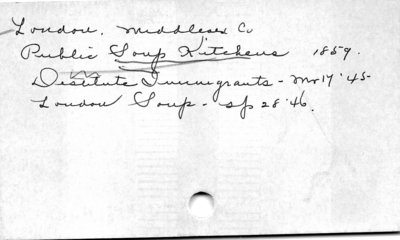 London, Middlesex Co
Public Soup Kitchens 1859.
Destitute Immigrants - Mr 17 '45-
London Soup - Sp 28 '46.